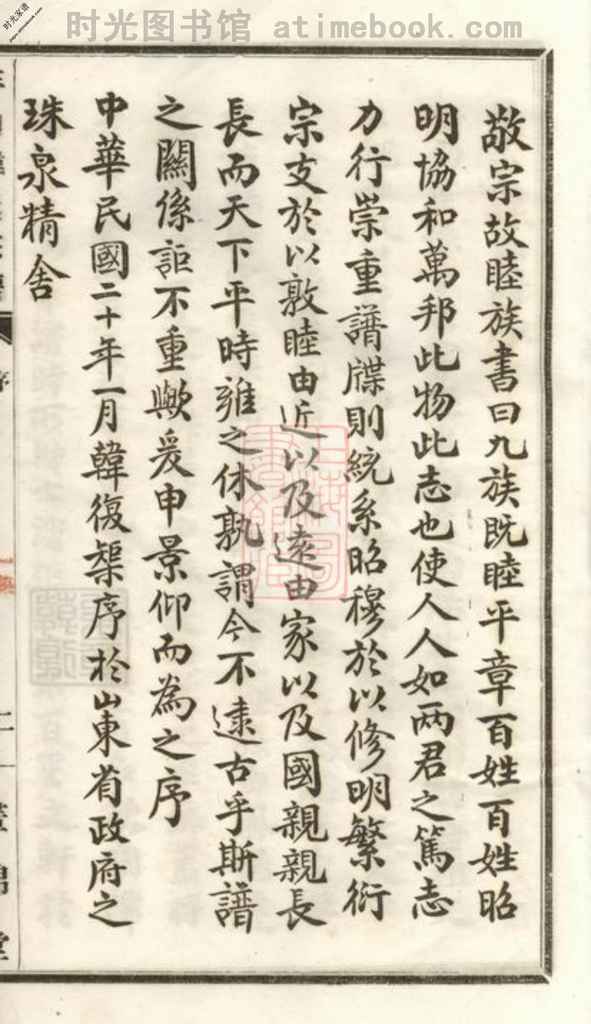 时光图书馆 atimebook.com
时光家谱
www.atimebook.com
敬宗故睦族書曰九族既睦平章百姓百姓昭
明協和萬邦此物此志也使人人如兩君之篤志
力行崇重譜牒則統系昭穆於以修明繁衍
宗支於以敦睦由近以及遠由家以及國親親長
長而天下平時雍之休孰謂今不逮古乎斯譜
之關係詎不重歟爰申景仰而為之序
中華民國二十年一月韓復榘序於山東省政府之
珠泉精舍
序
二
堂